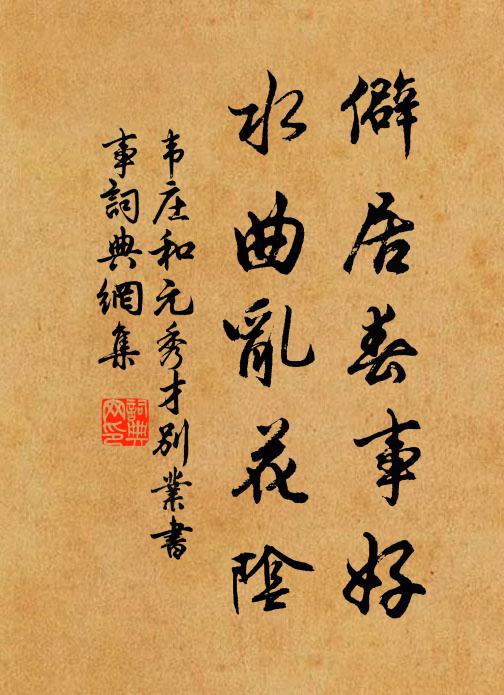 僻居春事好
水曲亂花陰
韦庄和元秀才別業書
事詞典網集
詞典
网印